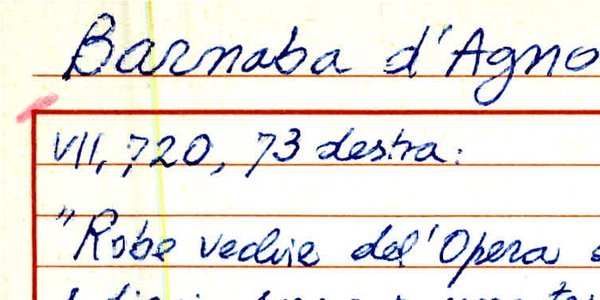 Barnaba d'Agno
VII, 720, 73 destra:
"Robe vechie del'Opera